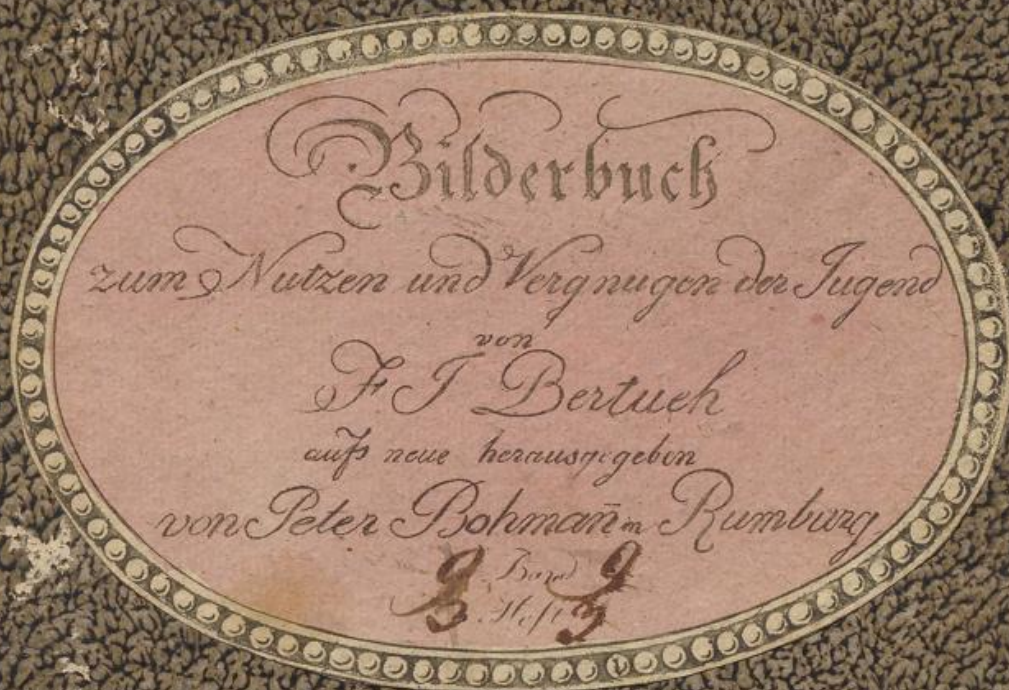 Bilderbuch
zum Nutzen und Vergnugen der Jugend
von
F J Bertuch
aufs neue herausgegeben
von Peter Bohman̄ in Rumburg
9 Band 9
3 Heft 3